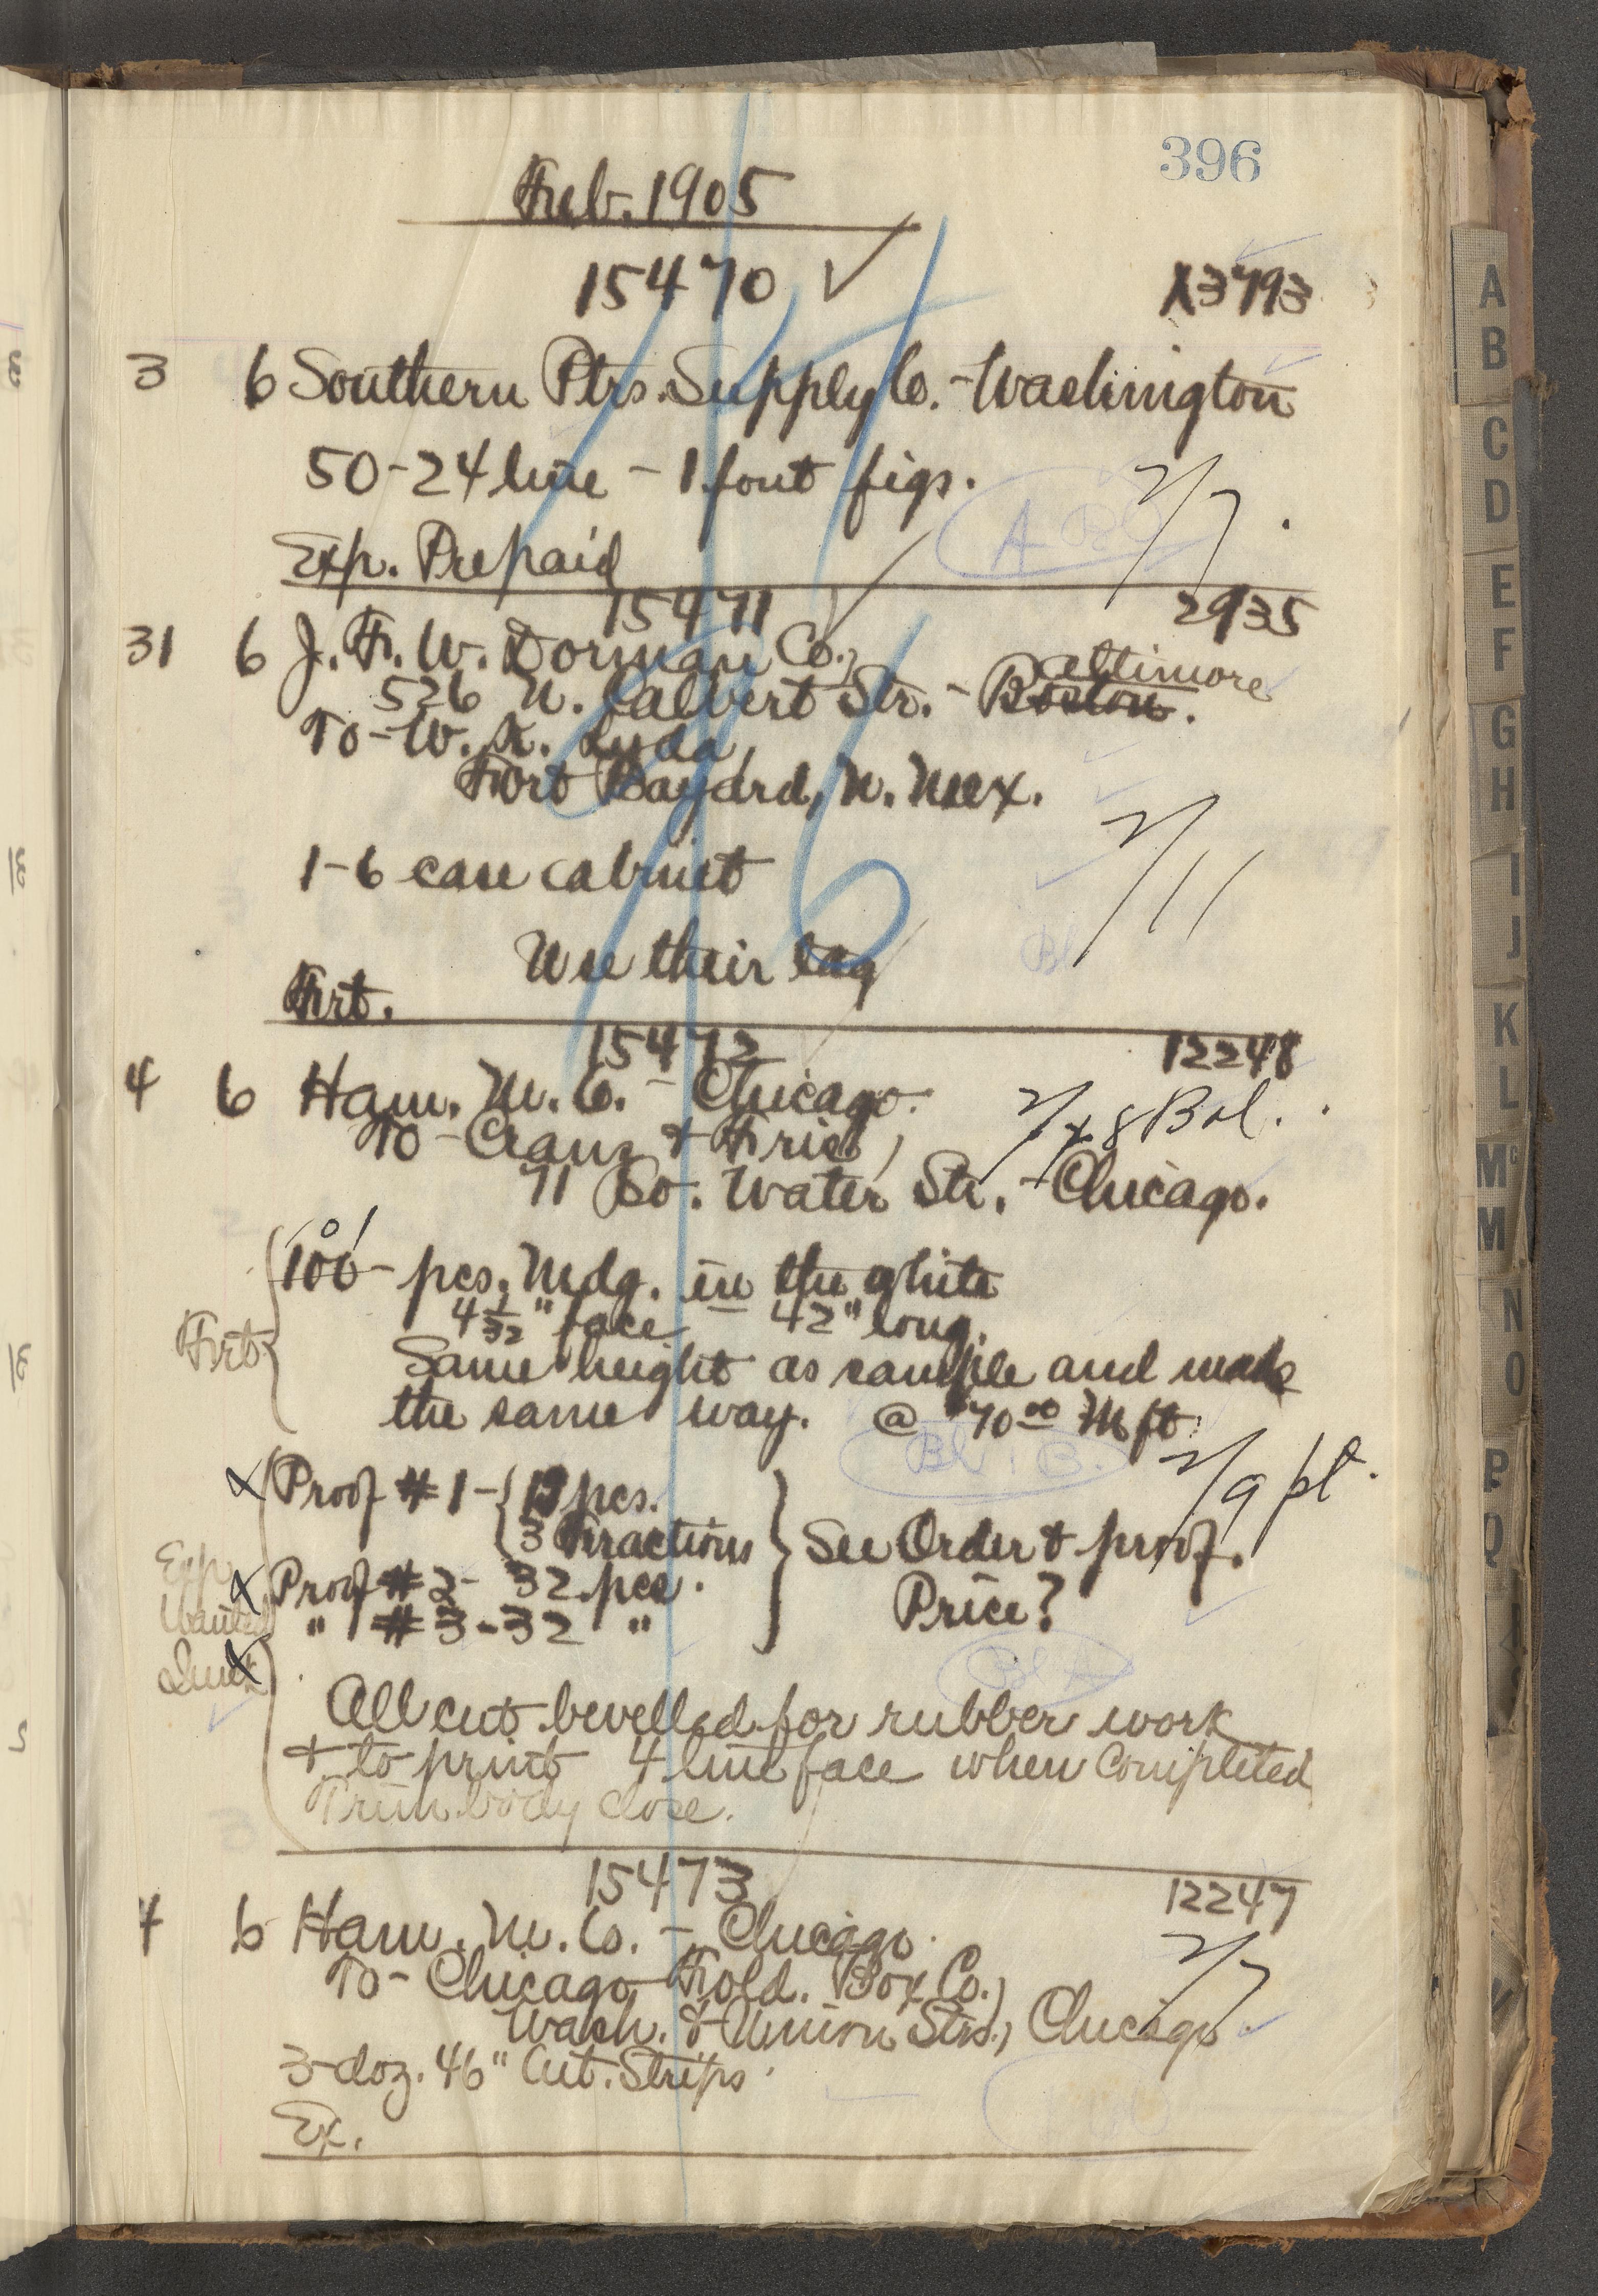 396
Feb. 1905
15470 ✓ X3793
3 6 Southern Ptrs. Supply Co. - Washington
50-24 line - 1 font figs.
2/7.
Exp. Prepaid
15471 2935
31 6 J. F. W. Dorman Co.,
526 N. Calvert Str. - Baltimore Boston.
To - W. K. Lyda,
Fort Bayard, N. Mex.
2/11
1-6 case cabinet
Use their tag
Frt.
15472 12248
4 6 Ham. M. Co. - Chicago.
2/8 Bal.
To - Cranz & Frick,
71 So. Water Str. - Chicago.
101
100 - pcs. Mdg. in the white
4 1/32" face 42" long.
Frt.
Same height as sample and made
the same way. @ 70 00 M ft.
2/9 pt.
x Proof #1 - 19 pcs.
3 Fractions
See Order & proof.
x Proof #2 - 32 pcs.
Price?
" #3 - 32 "
Exp
Wanted
Quick
All cut bevelled for rubber work
& to print 4 line face when completed
Trim body close.
15473 12247
4 6 Ham. M. Co. - Chicago.
2/7
To - Chicago Fold. Box Co.,
Wash. & Union Strs., Chicago
3 doz. 46" Cut. Strips
Ex.
A
B
C
D
E
F
G
H
I
J
K
L
Mc
M
N
O
P
Q